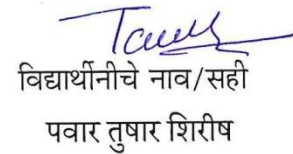 विद्यार्थीनीचे नाव/सही
पवार तुषार शिरीष